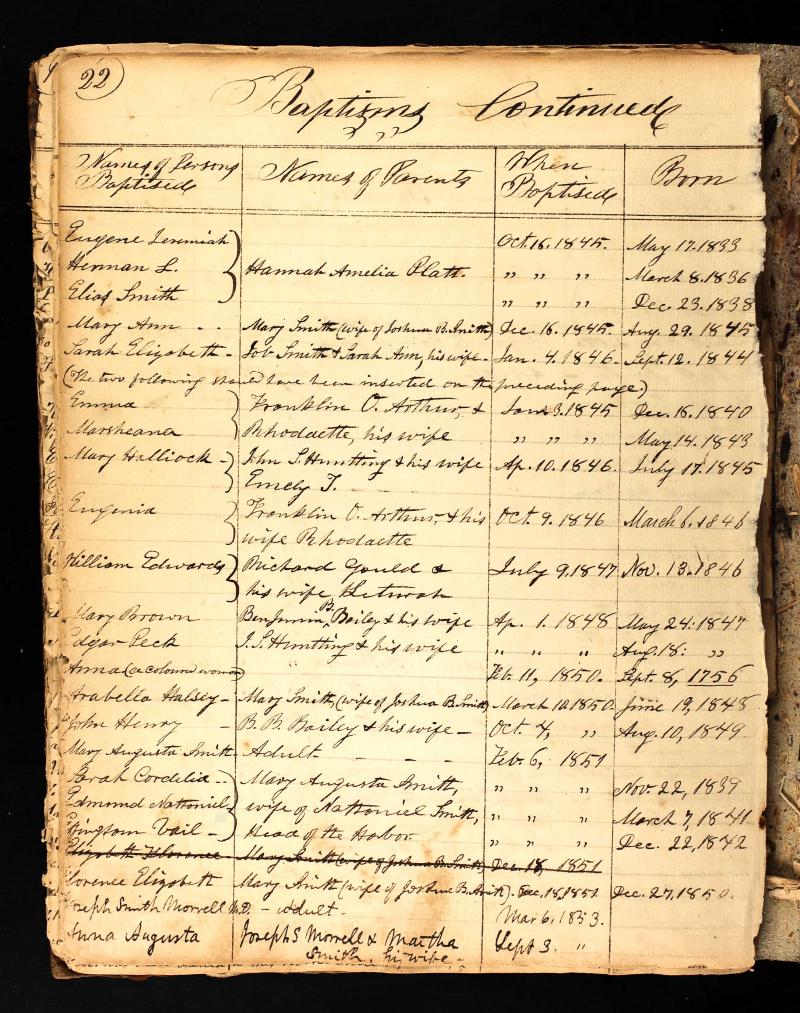 22
Baptisms Continued
Names of Persons Baptised | Names of Parents | When Baptised | Born
Eugene Jeremiah | Oct. 16. 1845. | May 17. 1833
Herman L. | Hannah Amelia Platt. | " " " | March 8. 1836
Elias Smith | " " " | Dec. 23. 1838
Mary Ann - - | Mary Smith (wife of Joshua B. Smith) | Dec. 16. 1845. | Aug. 29. 1845
Sarah Elizabeth - | Job Smith & Sarah Ann, his wife - | Jan. 4. 1846. | Sept. 12. 1844
(The two following should have been inserted on the preceeding page.)
Emma | Franklin O. Arthur, & | Jan. 3. 1845 | Dec. 16. 1840
Marsheana | Rhodaette, his wife | " " " | May 14. 1843
Mary Halliock - | John S. Huntting & his wife | Ap. 10. 1846. | July 17. 1845
Emely T.
Eugenia | Franklin O. Arthur, & his | Oct. 9. 1846 | March 6. 1846
wife Rhodaette
William Edwards | Richard Gould & | July 9. 1847 | Nov. 13. 1846
his wife Keturah
Mary Brown | Benjamin B. Bailey & his wife | Ap. 1. 1848 | May 24: 1847
Edgar Peck | J. S. Huntting & his wife | " " " | Aug. 18: "
Anna (a coloured woman) | Feb. 11, 1850. | Sept. 8, 1756
Arabella Halsey - | Mary Smith, (wife of Joshua B. Smith) | March 10. 1850 | June 19, 1848
John Henry - | B. B. Bailey & his wife - | Oct. 4, " | Aug. 10, 1849.
Mary Augusta Smith - | Adult - - - | Feb. 6, 1851
Sarah Cordelia - | Mary Augusta Smith, | " " " | Nov. 22, 1839
Edmond Nathaniel - | wife of Nathaniel Smith, | " " " | March 7, 1841
Effingham Vail - | Head of the Harbor. | " " " | Dec. 22, 1842
Elizabeth Florence - | Mary Smith (wife of Joshua B. Smith) | Dec. 18, 1851
Florence Elizabeth | Mary Smith (wife of Joshua B. Smith) - | Dec. 18, 1851 | Dec. 27, 1850.
Joseph Smith Morrell M.D. - Adult - | Mar. 6. 1853.
Anna Augusta | Joseph S Morrell & Martha | Sept 3. "
Smith, his wife -